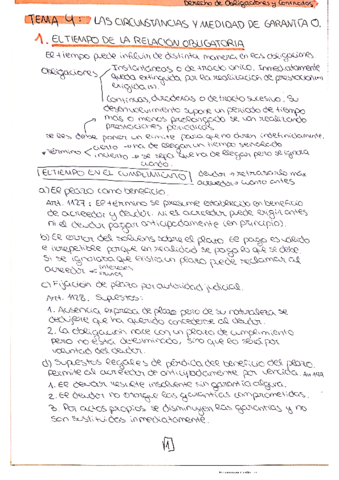 Derecho de Obligaciones y Contratos
TEMA 4: LAS CIRCUNSTANCIAS Y MEDIDAS DE GARANTÍA O.
1. EL TIEMPO DE LA RELACIÓN OBLIGATORIA
El tiempo puede influir de distinta manera en las obligaciones.
Obligaciones
Instantáneas o de tracto único. Inmediatamente
queda extinguida por la realización de prestaciones
exigida
Continuas, duraderas o de tracto sucesivo. Su
desenvolvimiento supone un período de tiempo
más o menos prolongado se van realizando
prestaciones periódicas.
Se les debe poner un límite para que no duren indefinidamente.
Término
cierto → ha de llegar un tiempo señalado
incierto → se sabe que ha de llegar pero se ignora
cuando.
EL TIEMPO EN EL CUMPLIMIENTO
deudor → retrasarlo más
acreedor → cuanto antes
a) El plazo como beneficio.
Art. 1127: El término se presume establecido en beneficio
de acreedor y deudor. Ni el acreedor puede exigir antes
ni el deudor pagar anticipadamente (en principio).
b) El error del solvens sobre el plazo. El pago es válido
e irrepetible porque en realidad se paga lo que se debe.
Si se ignoraba que existiera un plazo puede reclamar al
acreedor
intereses
frutos
c) Fijación de plazo por autoridad judicial.
Art. 1128. Supuestos:
1. Ausencia expresa de plazo pero de su naturaleza se
dedujere que ha querido concederse al deudor.
2. La obligación nace con un plazo de cumplimiento
pero no está determinado, sino que lo será por
voluntad del deudor.
d) Supuestos legales de pérdida del beneficio del plazo.
Permite al acreedor de anticipadamente por vencida. Art. 1129
1. El deudor resulte insolvente sin garantía alguna.
2. El deudor no otorgue las garantías comprometidas.
3. Por actos propios se disminuyen las garantías y no
son sustituidas inmediatamente.